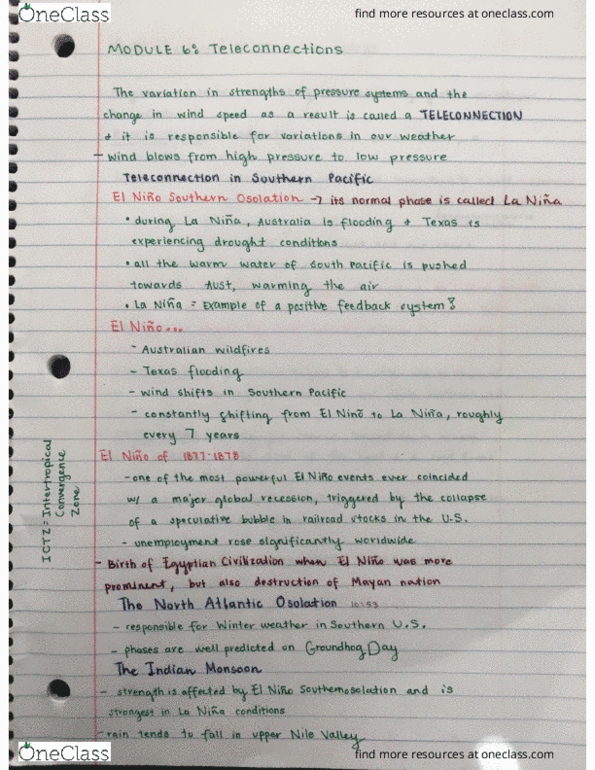 OneClass
find more resources at oneclass.com
MODULE 6: Teleconnections
The variation in strengths of pressure systems and the
change in wind speed as a result is called a TELECONNECTION
+ it is responsible for variations in our weather
- wind blows from high pressure to low pressure
Teleconnection in Southern Pacific
El Niño Southern Osolation → its normal phase is called La Niña
• during La Niña, Australia is flooding + Texas is
experiencing drought conditions
• all the warm water of South Pacific is pushed
towards Aust, warming the air
• La Niña = Example of a positive feedback system?
El Niño...
- Australian wildfires
- Texas flooding
- wind shifts in Southern Pacific
- constantly shifting from El Ninõ to La Niña, roughly
every 7 years
El Niño of 1877-1878
- one of the most powerful El Niño events ever coincided
w/ a major global recession, triggered by the collapse
of a speculative bubble in railroad stocks in the U.S.
- unemployment rose significantly worldwide
- Birth of Egyptian Civilization when El Niño was more
prominent, but also destruction of Mayan nation
The North Atlantic Osolation 10:53
- responsible for Winter weather in Southern U.S.
- phases are well predicted on Groundhog Day
The Indian Monsoon
- strength is affected by El Niño Southernosolation and is
strongest in La Niña conditions
- rain tends to fall in upper Nile Valley
ICTZ = Intertropical
Convergence
Zone
OneClass
find more resources at oneclass.com